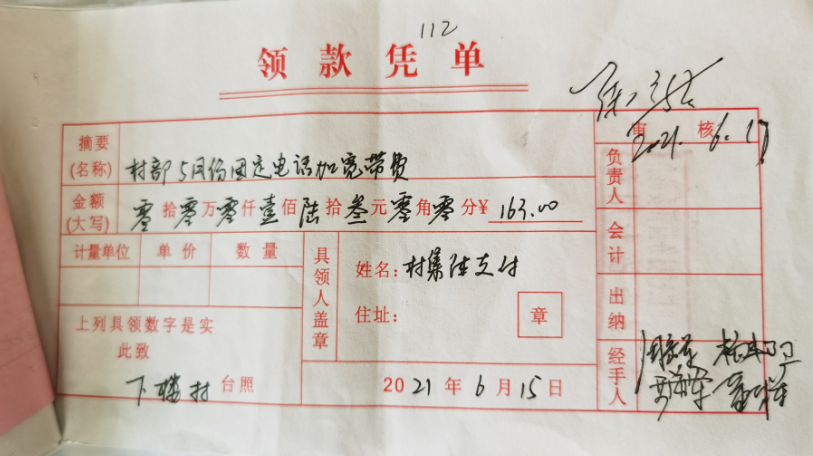 112
领款凭单
2021.6.17
审核
摘要(名称) 村部5月份固定电话加宽带费
金额(大写) 零拾零万零仟壹佰陆拾叁元零角零分¥ 163.00
计量单位 单价 数量
具领人盖章
姓名：村集体支付
住址：
章
上列具领数字是实
此致
下楼村台照
2021年6月15日
负责人
会计
出纳
经手人